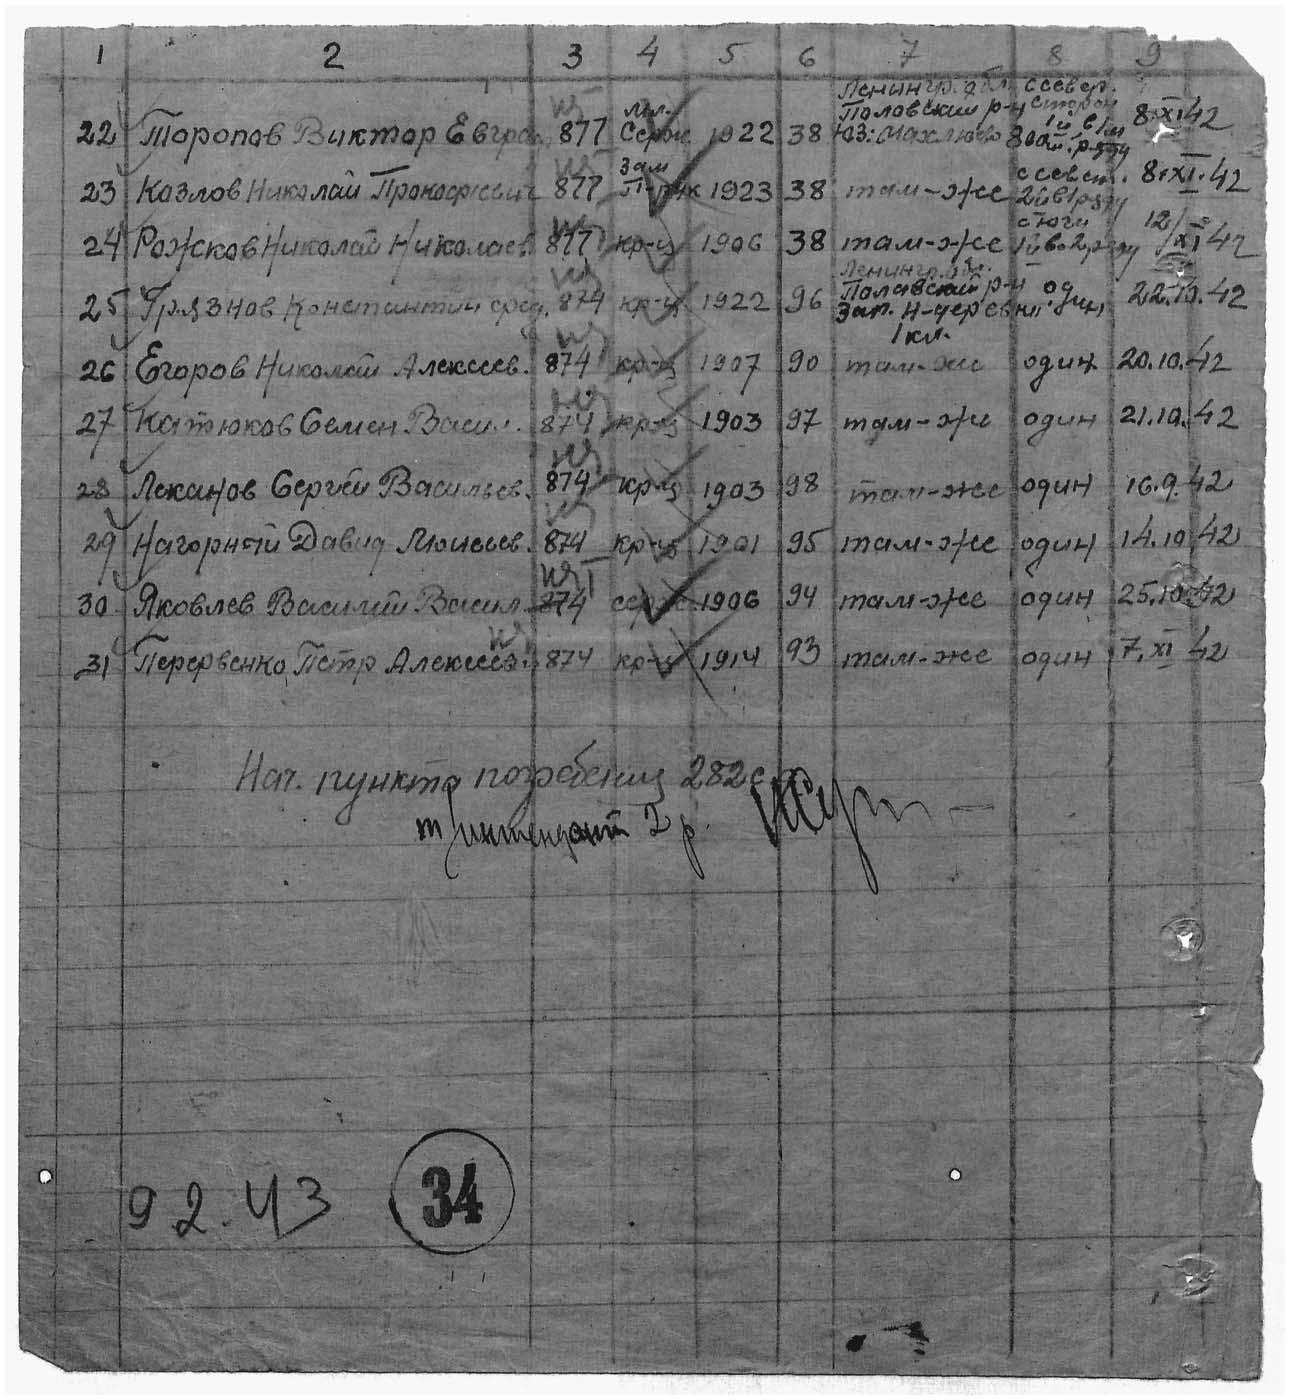 1 2 3 4 5 6 7 8 9
Ленингр. обл. с север.
мл. Половский р-н сторон
22 Торопов Виктор Евгра 877 Серж 1922 38 ЮЗ: Махлюево 1й в 1м 8.XI.42
ряду
зам с север.
23 Козлов Николай Прокофьевич 877 П-рук 1923 38 там-же 2й в 1 ряду 8.XI.42
с юги
24 Рожков Николай Николаев. 877 кр-ц 1906 38 там-же 1й во 2 ряду 12/XI 42
Ленингр. обл.
Половский р-н
25 Грязнов Константин 874 кр-ц 1922 96 Зап. Н-деревни один 22.10.42
1 км.
26 Егоров Николай Алексеев. 874 кр-ц 1907 90 там-же один 20.10.42
27 Катюков Семен Васил. 874 кр-ц 1903 97 там-же один 21.10.42
28 Леканов Сергей Васильев. 874 кр-ц 1903 98 там-же один 16.9.42
29 Нагорный Давид Моисеев. 874 кр-ц 1901 95 там-же один 14.10.42
30 Яковлев Василий Васил. 874 серж 1906 94 там-же один 25.10.42
31 Перервенко Петр Алексеев. 874 кр-ц 1914 93 там-же один 7.XI 42
Нач. пункта погребения 282с
т/интендант 2 р.
9.2.43
34